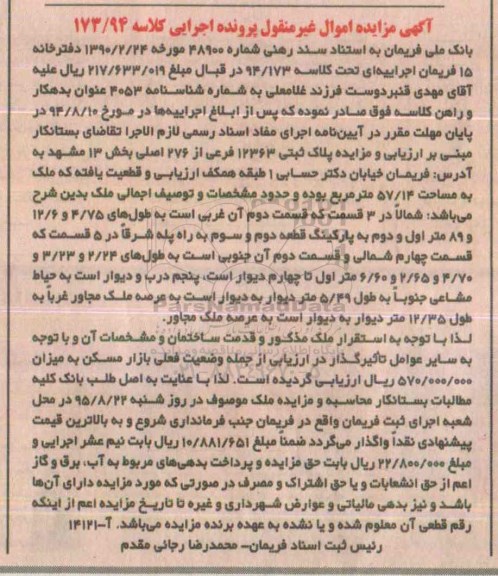 آگهی مزایده اموال غیرمنقول پرونده اجرایی کلاسه ۱۷۳/۹۴
بانک ملی فریمان به استناد سند رهنی شماره ۴۸۹۰۰ مورخه ۱۳۹۰/۲/۲۴ دفترخانه
۱۵ فریمان اجراییه‌ای تحت کلاسه ۹۴/۱۷۳ در قبال مبلغ ۲۱۷/۶۳۳/۰۱۹ ریال علیه
آقای مهدی قنبردوست فرزند غلامعلی به شماره شناسنامه ۴۰۵۳ عنوان بدهکار
و راهن کلاسه فوق صادر نموده که پس از ابلاغ اجراییه‌ها در مورخ ۹۴/۸/۱۰ در
پایان مهلت مقرر در آیین‌نامه اجرای مفاد اسناد رسمی لازم الاجرا تقاضای بستانکار
مبنی بر ارزیابی و مزایده پلاک ثبتی ۱۲۳۶۳ فرعی از ۲۷۶ اصلی بخش ۱۳ مشهد به
آدرس: فریمان خیابان دکتر حسابی ۱ طبقه همکف ارزیابی و قطعیت یافته که ملک
به مساحت ۵۷/۱۴ مترمربع بوده و حدود مشخصات و توصیف اجمالی ملک بدین شرح
می‌باشد: شمالاً در ۳ قسمت که قسمت دوم آن غربی است به طول‌های ۴/۷۵ و ۱۲/۶
و ۸۹ متر اول و دوم به پارکینگ قطعه دوم و سوم به راه پله شرقاً در ۵ قسمت که
قسمت چهارم شمالی و قسمت دوم آن جنوبی است به طول‌های ۲/۲۴ و ۳/۲۳ و
۴/۷۰ و ۲/۶۵ و ۶/۶۰ متر اول تا چهارم دیوار است، پنجم درب و دیوار است به حیاط
مشاعی جنوباً به طول ۵/۴۹ متر دیوار به دیوار است به عرصه ملک مجاور غرباً به
طول ۱۲/۳۵ متر دیوار به دیوار است به عرصه ملک مجاور.
لذا با توجه به استقرار ملک مذکور و قدمت ساختمان و مشخصات آن و با توجه
به سایر عوامل تأثیرگذار در ارزیابی از جمله وضعیت فعلی بازار مسکن به میزان
۵۷۰/۰۰۰/۰۰۰ ریال ارزیابی گردیده است. لذا با عنایت به اصل طلب بانک کلیه
مطالبات بستانکار محاسبه و مزایده ملک موصوف در روز شنبه ۹۵/۸/۲۲ در محل
شعبه اجرای ثبت فریمان واقع در فریمان جنب فرمانداری شروع و به بالاترین قیمت
پیشنهادی نقداً واگذار می‌گردد ضمناً مبلغ ۱۰/۸۸۱/۶۵۱ ریال بابت نیم عشر اجرایی و
مبلغ ۲۲/۸۰۰/۰۰۰ ریال بابت حق مزایده و پرداخت بدهی‌های مربوط به آب، برق و گاز
اعم از حق انشعابات و یا حق اشتراک و مصرف در صورتی که مورد مزایده دارای آن‌ها
باشد و نیز بدهی مالیاتی و عوارض شهرداری و غیره تا تاریخ مزایده اعم از اینکه
رقم قطعی آن معلوم شده و یا نشده به عهده برنده مزایده می‌باشد. آ-۱۴۱۲۱
رئیس ثبت اسناد فریمان- محمدرضا رجائی مقدم
ParsNamadData